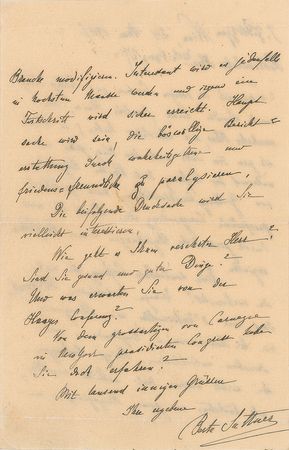 Branche modifizieren. Interessant wird es jedenfalls
in höchstem Maasse werden und irgend ein
Fortschritt wird sicher erreicht. Haupt
sache wird sein, die böswillige Bericht-
erstattung durch wahrheitsgetreue und
friedens=freundliche zu paralysieren,
Die beifolgende Drucksache wird Sie
vielleicht interessiren,
Wie geht es Ihnen verehrter Herr?
Sind Sie gesund und guter Dinge?
Und was erwarten Sie von der
Haager Conferenz?
Von dem grossartigen von Carnegie
in NewYork praesidirten Congresse haben
Sie doch erfahren?
Mit tausend innigen Grüssen
Ihre ergebene
Berta Suttner